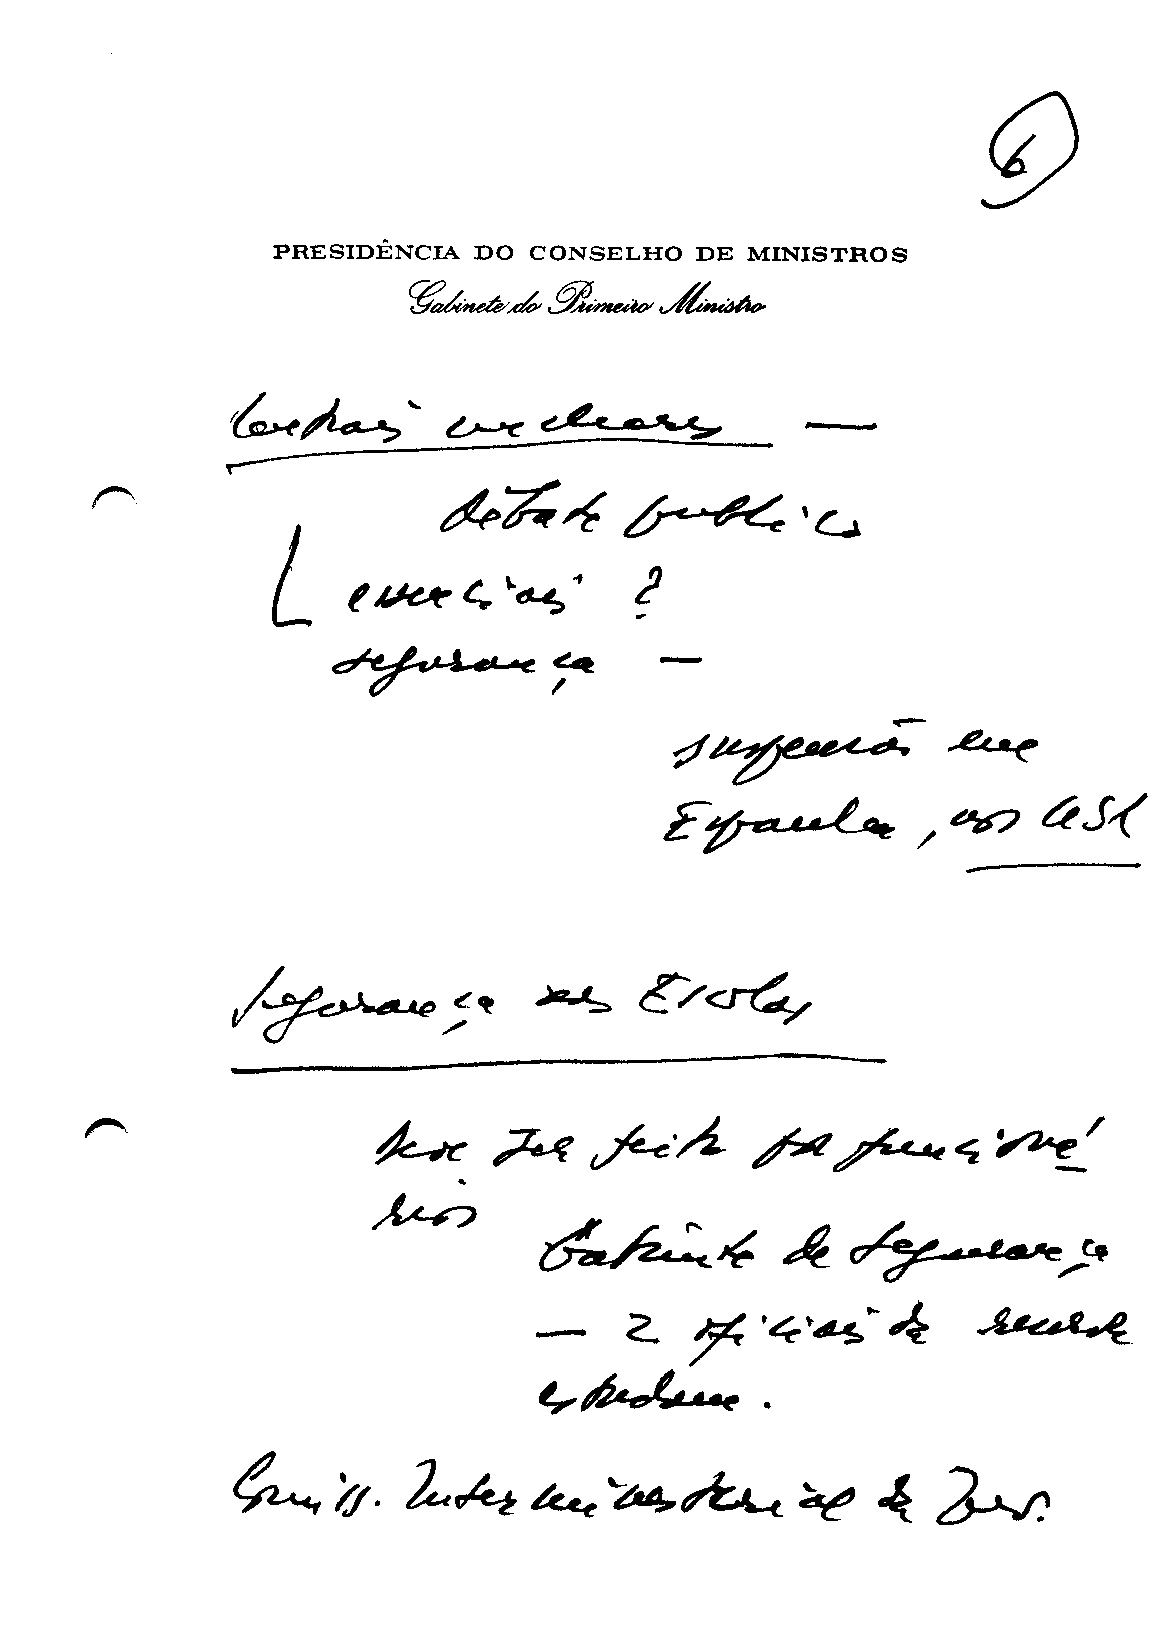 6
PRESIDÊNCIA DO CONSELHO DE MINISTROS
Gabinete do Primeiro Ministro
Centrais nucleares —
Debate publico
essenciais ?
segurança —
suspensão em
Espanha, nos USA
Segurança nas Escolas
feito por funcioná
rios
Gabinete de Segurança
— 2 oficiais da
estudam.
Comiss. Interministerial da Juv.